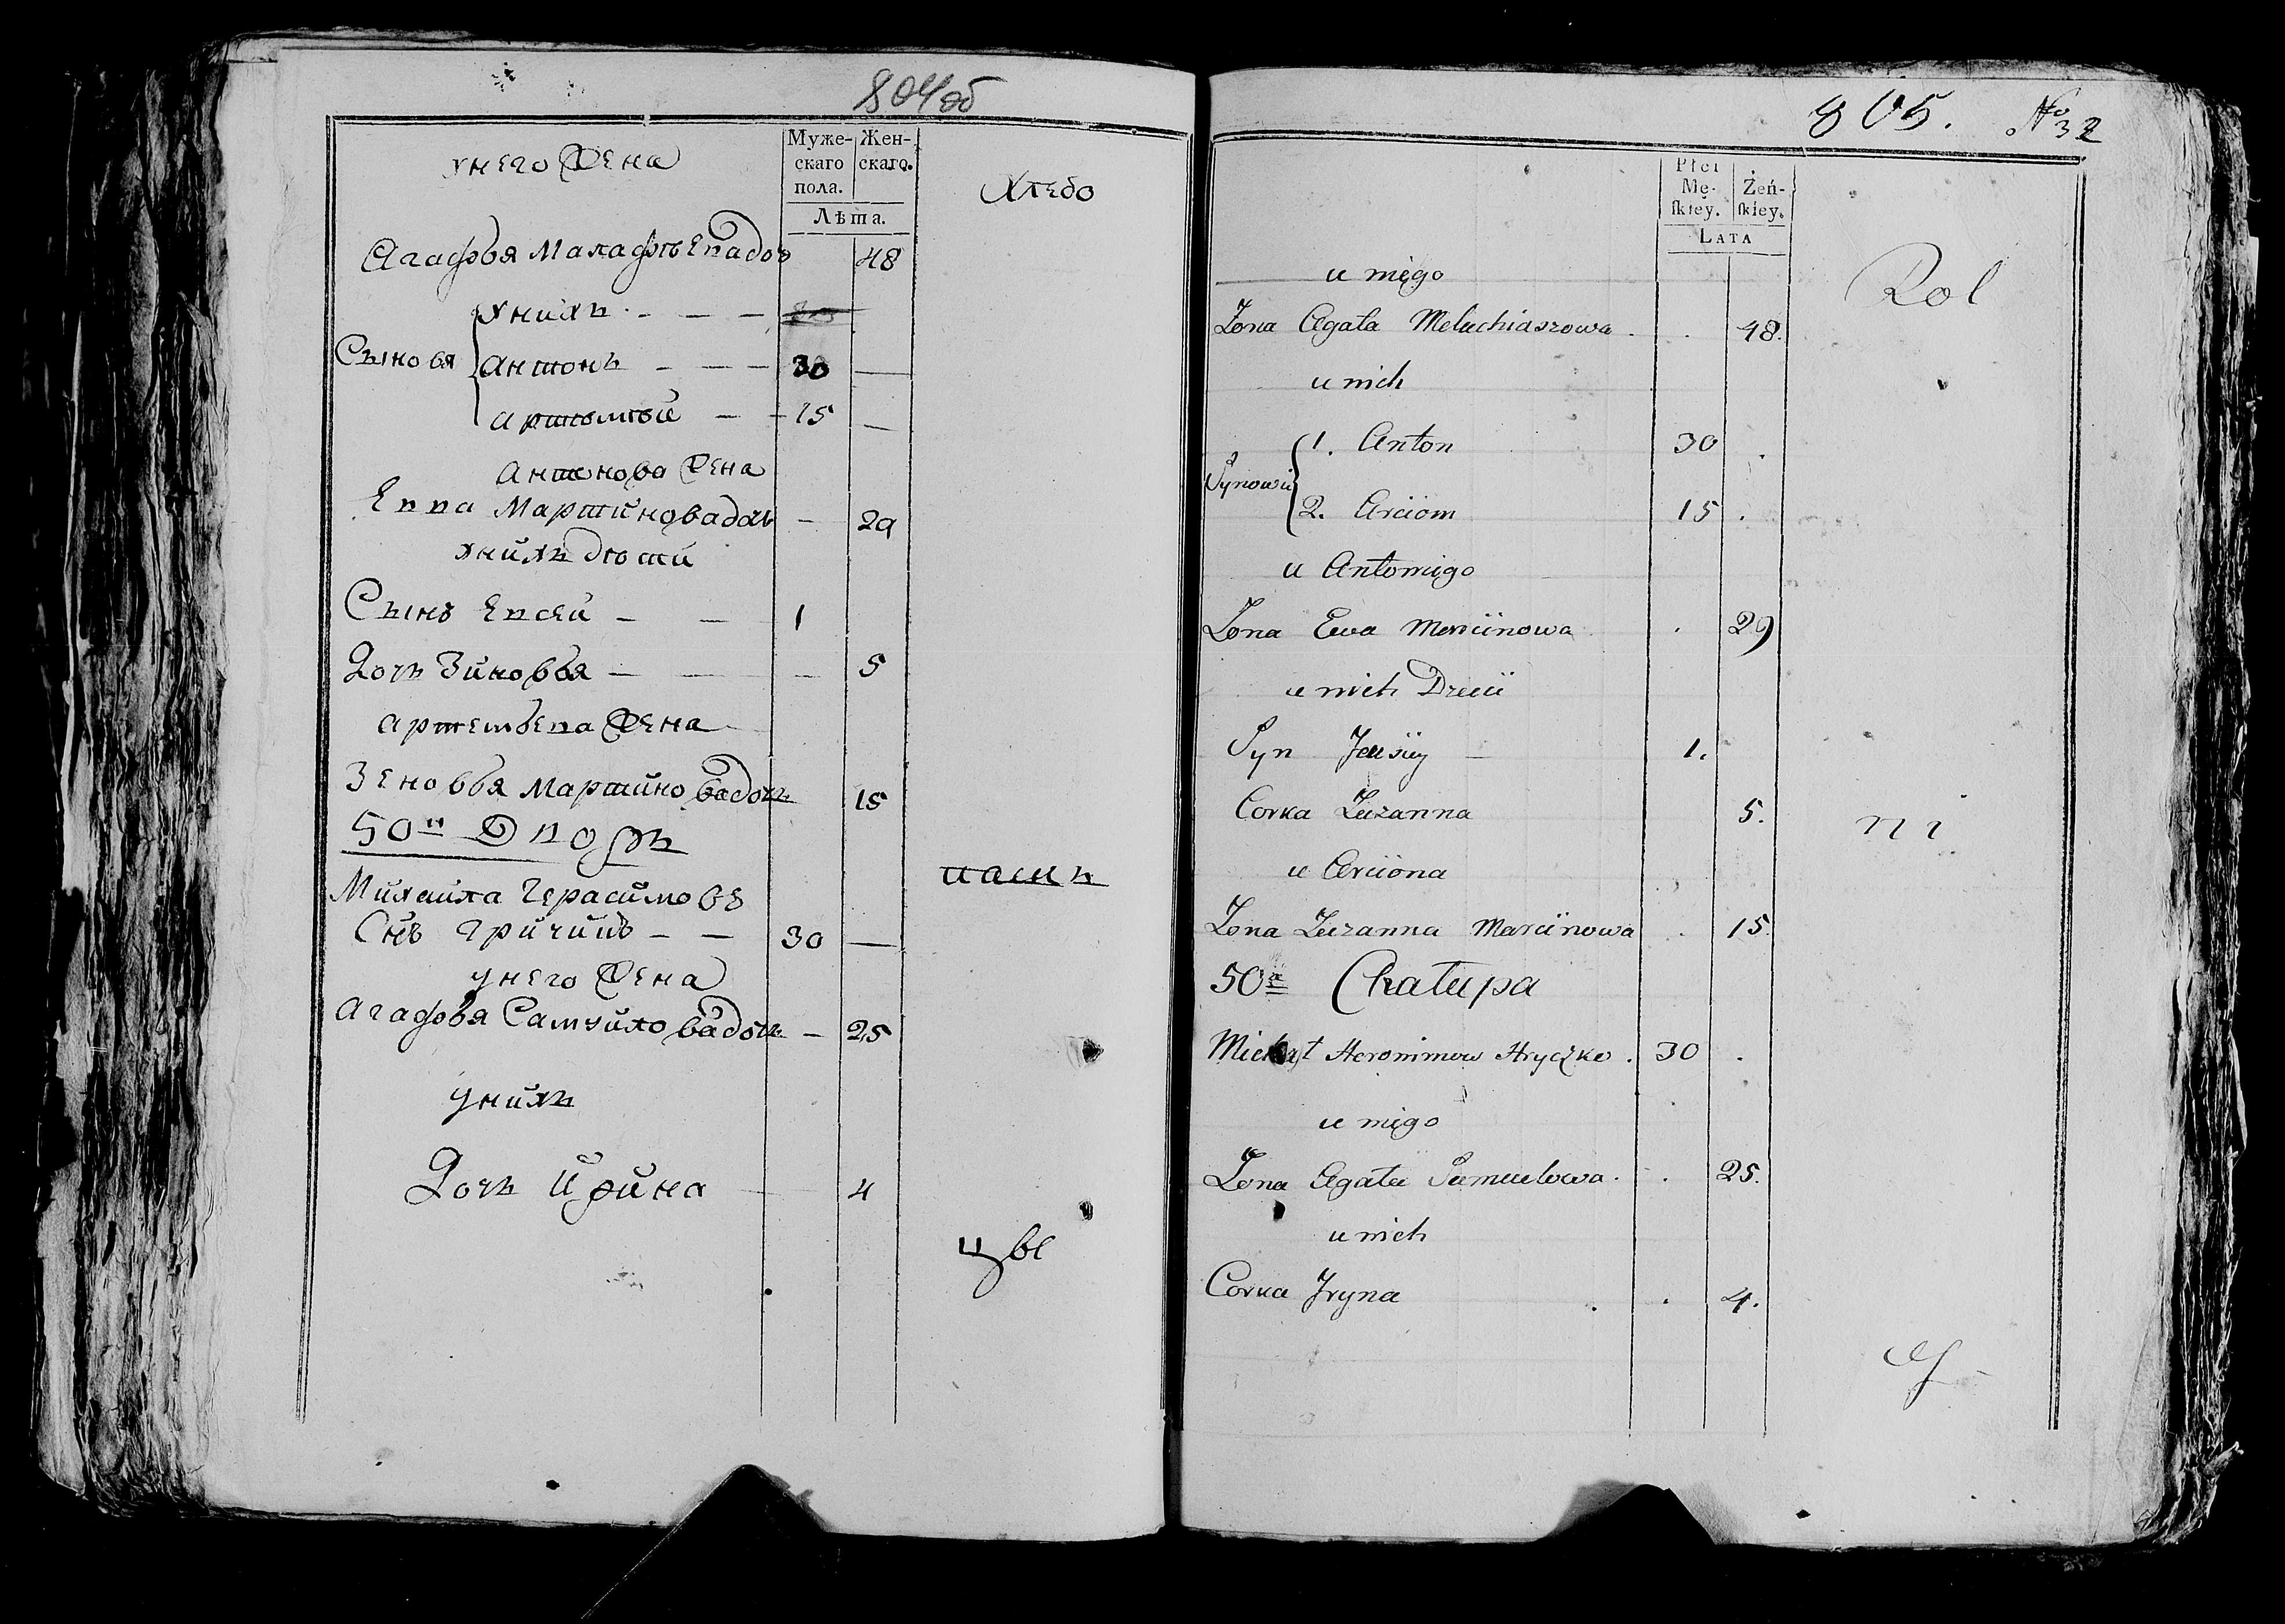 804 об
Муже-
скаго
пола.
Жен-
скаго.
Лѣта.
унего Жена
Хлебо
Агафья Малафѣевадоч 48
унихъ
Сыновя
Антонъ 30
Артѣмѣй 15
Антонова Жена
Евва Мартиноваdочь 29
унихъ дѣти
Сынъ Евсей 1
Дочь Зиновья 5
Артемьева Жена
Зеновья Мартиновадочь 15
50й Дворъ
пашъ
Михайла Герасимовъ
Снъ Гричишъ 30
унего Жена
Агафья Самуйловадочь 25
унихъ
Дочь Ирина 4
цы
805. №32
Płci
Mę-
skiey.
Żeń-
skiey.
LATA
u niego
Rol
Zona Agata Meluchiaszowa 48.
u nich
Synowie
1. Anton 30
2. Arciom 15
u Antoniego
Zona Ewa Marcinowa 29
u nich Dzieci
Syn Jeusiey 1.
Corka Zuzanna 5.
ni
u Arciona
Zona Zuzanna Marcinowa 15.
50a Chałupa
Michał Heronimow Hryczko. 30
u niego
Zona Agata Samuelowa. 25.
u nich
Corka Jryna 4.